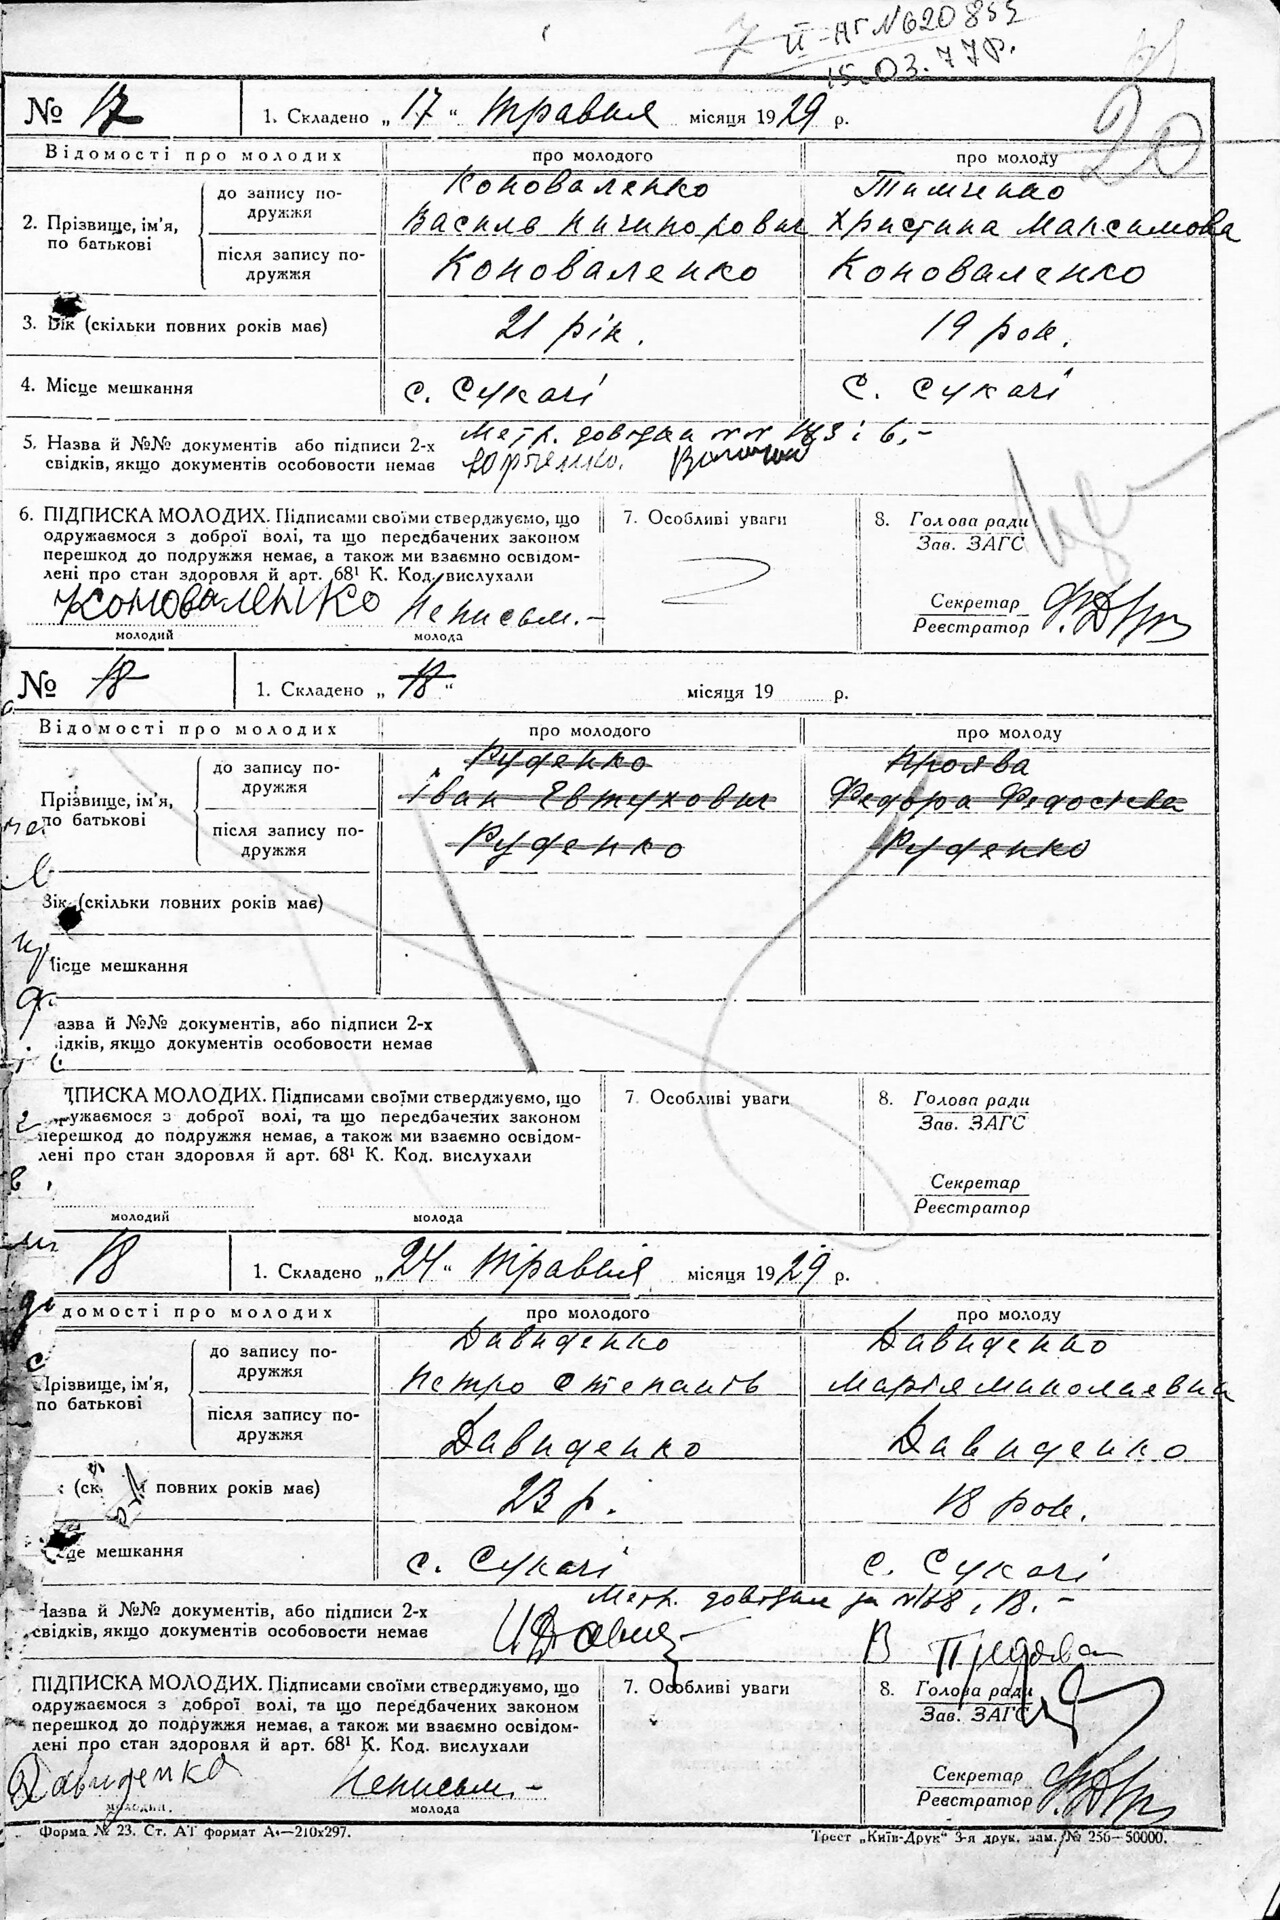 II-АГ №620855
15.03.77р.
20
№ 17 1. Складено „17“ травня місяця 1929 р.
Відомості про молодих про молодого про молоду
2. Прізвище, ім'я, по батькові
до запису подружжя Коноваленко Тимченко
Василь Ничипорович Христина Максимова
після запису подружжя Коноваленко Коноваленко
3. Вік (скільки повних років має) 21 рік. 19 рок.
4. Місце мешкання с. Сукачі с. Сукачі
5. Назва й №№ документів або підписи 2-х Метр. довідка
свідків, якщо документів особовости немає
6. ПІДПИСКА МОЛОДИХ. Підписами своїми стверджуємо, що 7. Особливі уваги 8. Голова ради
одружаємося з доброї волі, та що передбачених законом Зав. ЗАГС
перешкод до подружжя немає, а також ми взаємно освідом-
лені про стан здоровля й арт. 68¹ К. Код. вислухали
Секретар
Коноваленко Неписьм.- Реєстратор
молодий молода
№ 18 1. Складено „18“ місяця 19 р.
Відомості про молодих про молодого про молоду
Прізвище, ім'я, по батькові
до запису подружжя Руденко
Іван Євтухович Федора Федосієва
після запису подружжя Руденко Руденко
Вік (скільки повних років має)
Місце мешкання
азва й №№ документів, або підписи 2-х
ідків, якщо документів особовости немає
ДПИСКА МОЛОДИХ. Підписами своїми стверджуємо, що 7. Особливі уваги 8. Голова ради
ружаємося з доброї волі, та що передбачених законом Зав. ЗАГС
перешкод до подружжя немає, а також ми взаємно освідом-
лені про стан здоровля й арт. 68¹ К. Код. вислухали
Секретар
Реєстратор
молодий молода
18 1. Складено „24“ травня місяця 1929 р.
ідомості про молодих про молодого про молоду
Прізвище, ім'я, по батькові
до запису подружжя Давиденко Давиденко
Петро Степанів Марія Миколаевна
після запису подружжя Давиденко Давиденко
повних років має) 23 р. 18 рок.
мешкання с. Сукачі с. Сукачі
Назва й №№ документів, або підписи 2-х Метр.
свідків, якщо документів особовости немає
ПІДПИСКА МОЛОДИХ. Підписами своїми стверджуємо, що 7. Особливі уваги 8. Голова ради
одружаємося з доброї волі, та що передбачених законом Зав. ЗАГС
перешкод до подружжя немає, а також ми взаємно освідом-
лені про стан здоровля й арт. 68¹ К. Код. вислухали
Секретар
Давиденко Неписьм.- Реєстратор
молодий. молода
Форма № 23. Ст. АТ формат А₄—210х297. Трест „Київ-Друк“ 3-я друк. зам. № 256—50000.